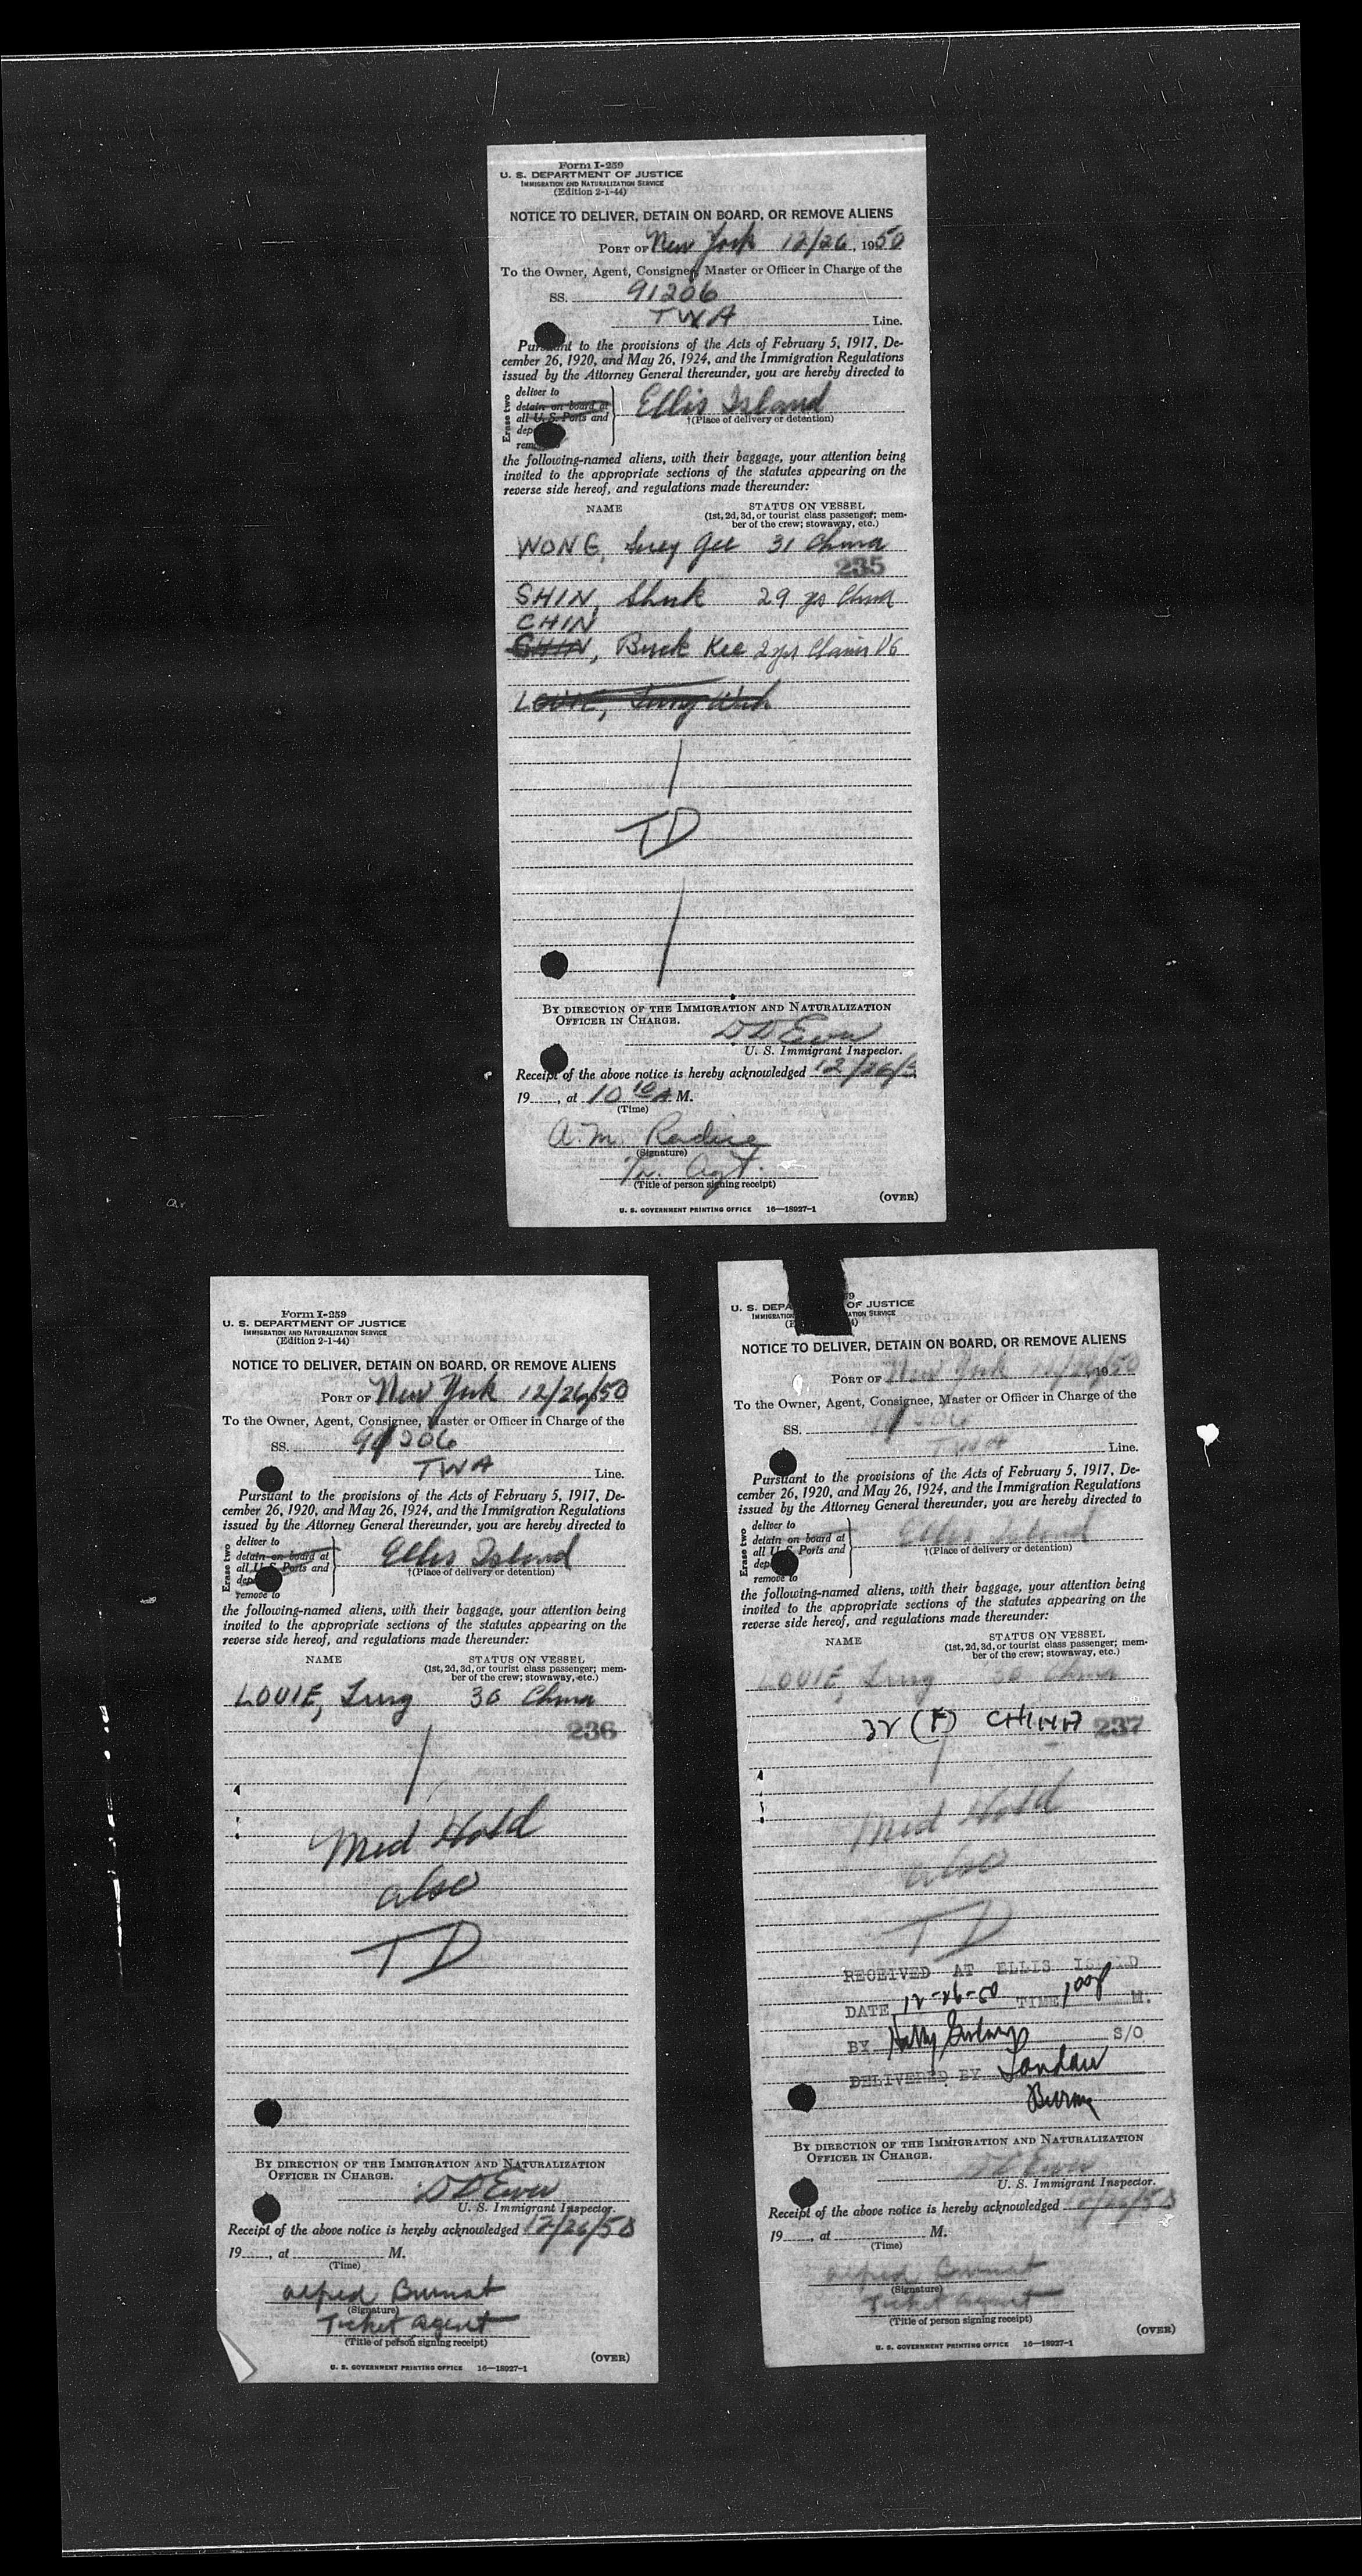 Form I-259
U. S. DEPARTMENT OF JUSTICE
IMMIGRATION AND NATURALIZATION SERVICE
(Edition 2-1-44)
NOTICE TO DELIVER, DETAIN ON BOARD, OR REMOVE ALIENS
PORT OF New York 12/26, 1950
To the Owner, Agent, Consignee, Master or Officer in Charge of the
SS. 91206
TWA Line.
Pursuant to the provisions of the Acts of February 5, 1917, De-
cember 26, 1920, and May 26, 1924, and the Immigration Regulations
issued by the Attorney General thereunder, you are hereby directed to
Erase two
deliver to
detain on board at
all U. S. Ports and
dep
rem
Ellis Island
†(Place of delivery or detention)
the following-named aliens, with their baggage, your attention being
invited to the appropriate sections of the statutes appearing on the
reverse side hereof, and regulations made thereunder:
NAME STATUS ON VESSEL
(1st, 2d, 3d, or tourist class passenger; mem-
ber of the crew; stowaway, etc.)
WONG, Suey Gee 31 China
235
SHIN, Shuk 29 yo China
CHIN
SHIN, Buck Kee 2 yrs Claims US
LOUIE, Lung
TD
BY DIRECTION OF THE IMMIGRATION AND NATURALIZATION
OFFICER IN CHARGE.
D D Ewer
U. S. Immigrant Inspector.
Receipt of the above notice is hereby acknowledged 12/26/5
19 , at 10 10 A M.
(Time)
A. M.
(Signature)
Tr. Agt.
(Title of person signing receipt)
(OVER)
U. S. GOVERNMENT PRINTING OFFICE 16—18927-1
Form I-259
U. S. DEPARTMENT OF JUSTICE
IMMIGRATION AND NATURALIZATION SERVICE
(Edition 2-1-44)
NOTICE TO DELIVER, DETAIN ON BOARD, OR REMOVE ALIENS
PORT OF New York 12/26/50
To the Owner, Agent, Consignee, Master or Officer in Charge of the
SS. 91206
TWA Line.
Pursuant to the provisions of the Acts of February 5, 1917, De-
cember 26, 1920, and May 26, 1924, and the Immigration Regulations
issued by the Attorney General thereunder, you are hereby directed to
Erase two
deliver to
detain on board at
all U. S. Ports and
dep
remove to
Ellis Island
†(Place of delivery or detention)
the following-named aliens, with their baggage, your attention being
invited to the appropriate sections of the statutes appearing on the
reverse side hereof, and regulations made thereunder:
NAME STATUS ON VESSEL
(1st, 2d, 3d, or tourist class passenger; mem-
ber of the crew; stowaway, etc.)
LOUIE, Lung 30 China
236
Med Hold
also
TD
BY DIRECTION OF THE IMMIGRATION AND NATURALIZATION
OFFICER IN CHARGE.
D D Ewer
U. S. Immigrant Inspector.
Receipt of the above notice is hereby acknowledged 12/26/50
19 , at M.
(Time)
Alfred Burnat
(Signature)
Ticket Agent
(Title of person signing receipt)
(OVER)
U. S. GOVERNMENT PRINTING OFFICE 16—18927-1
59
U. S. DEPA OF JUSTICE
IMMIG ATION SERVICE
(E 4)
NOTICE TO DELIVER, DETAIN ON BOARD, OR REMOVE ALIENS
PORT OF New York 12/26/50
To the Owner, Agent, Consignee, Master or Officer in Charge of the
SS. 91206
TWA Line.
Pursuant to the provisions of the Acts of February 5, 1917, De-
cember 26, 1920, and May 26, 1924, and the Immigration Regulations
issued by the Attorney General thereunder, you are hereby directed to
Erase two
deliver to
detain on board at
all U. S. Ports and
dep
remove to
Ellis Island
†(Place of delivery or detention)
the following-named aliens, with their baggage, your attention being
invited to the appropriate sections of the statutes appearing on the
reverse side hereof, and regulations made thereunder:
NAME STATUS ON VESSEL
(1st, 2d, 3d, or tourist class passenger; mem-
ber of the crew; stowaway, etc.)
LOUIE, Lung 30 China
32 (F) CHINA 237
Med Hold
also
TD
RECEIVED AT ELLIS ISLAND
DATE 12-26-50 TIME 1 00 P M.
BY Harry S/O
DELIVERED BY Landau
BY DIRECTION OF THE IMMIGRATION AND NATURALIZATION
OFFICER IN CHARGE.
D D Ewer
U. S. Immigrant Inspector.
Receipt of the above notice is hereby acknowledged 12/26/50
19 , at M.
(Time)
Alfred Burnat
(Signature)
Ticket Agent
(Title of person signing receipt)
(OVER)
U. S. GOVERNMENT PRINTING OFFICE 16—18927-1